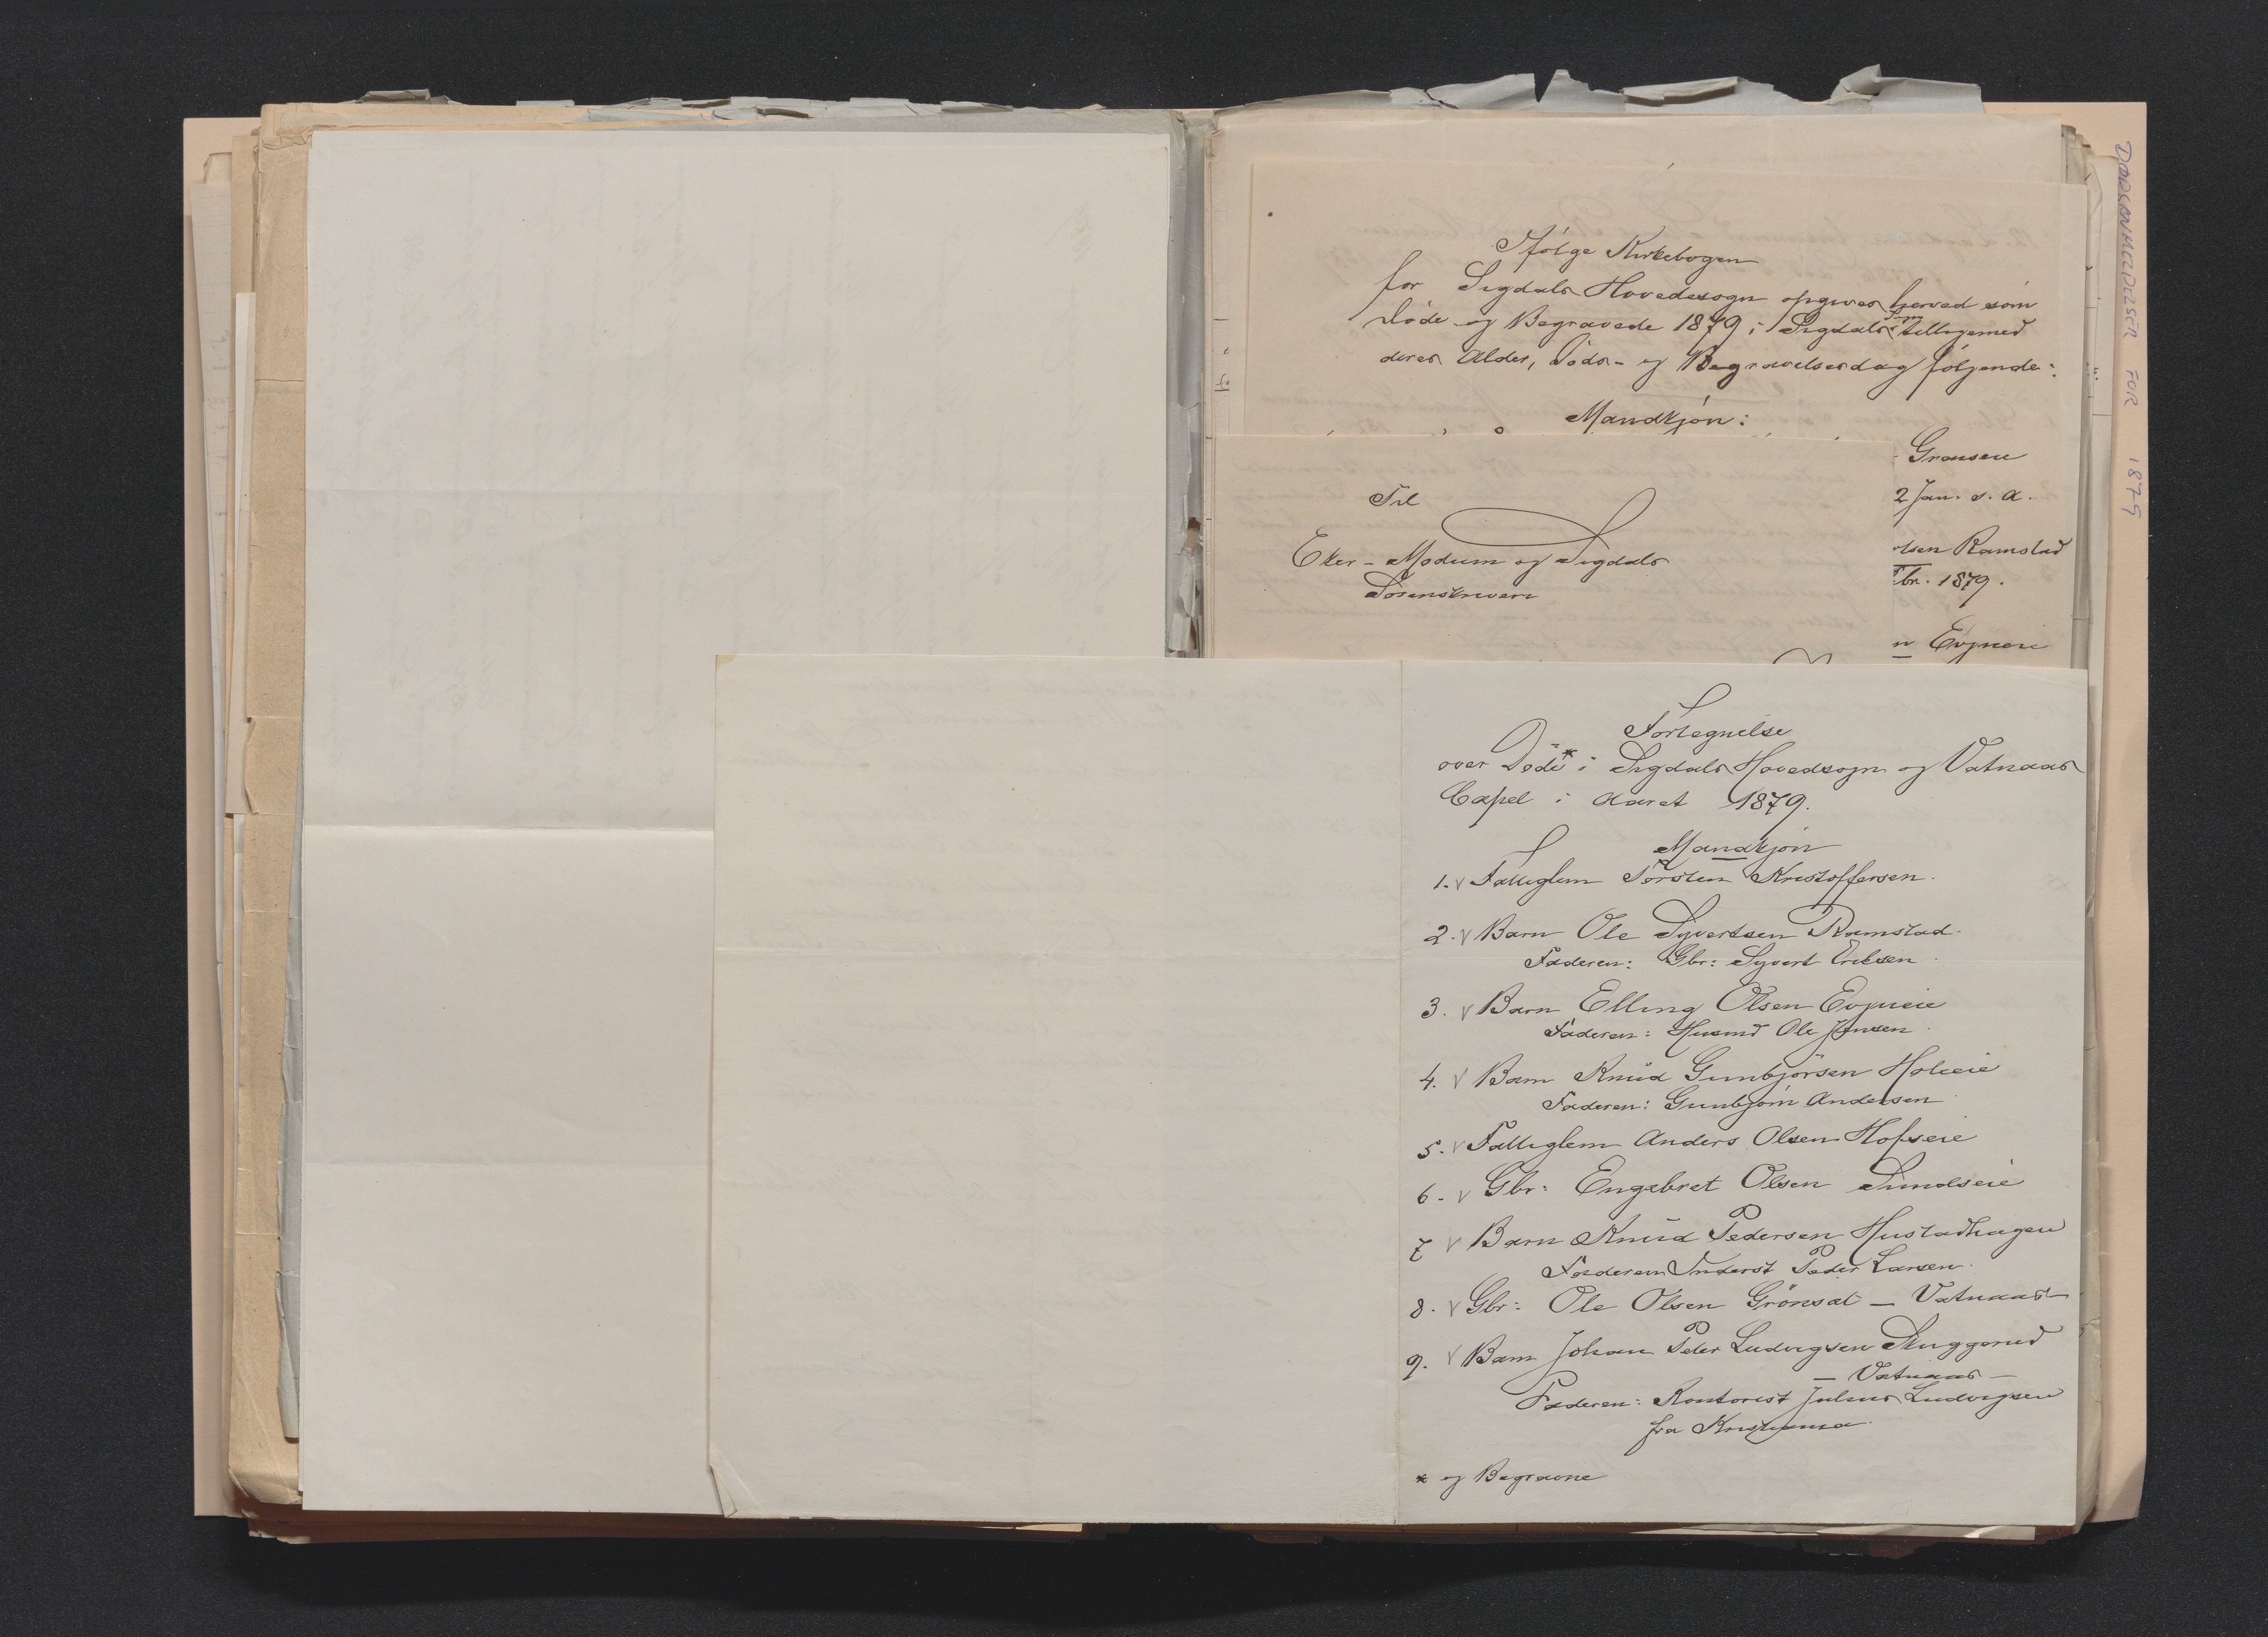 Ifølge Kirkebogen
for Sigdals Hovedsogn opgives herved som
Døde og Begravede 1879 i Sigdals tilligemed
deres Alder, Døds- og Begravelsesdag følgende:
Mandkjøn:
Gransen
2 Jan. s. a.
lsen Ramstad
br. 1879.
n Evjueie
Til
Eker-Modum og Sigdals
Sorenskriveri
Fortegnelse
over Døde* i Sigdals Hovedsogn og Vatnaas
Capel i Aaret 1879.
Mandkjøn
1. v Fattiglem Torsten Kristoffersen.
2. v Barn Ole Syvertsen Ramstad.
Faderen: Gbr: Syvert Eriksen.
3. v Barn Elling Olsen Evjueie
Faderen: Husmd Ole Jensen.
4. v Barn Knud Gunbjørsen Holieie
Faderen: Gunbjørn Andersen
5. v Fattiglem Anders Olsen Hofseie
6. v Gbr: Engebret Olsen Sundseie
7 v Barn Knud Pedersen Hustadhagen
Faderen Inderst Peder Larsen.
8. v Gbr: Ole Olsen Grønsæt – Vatnaas –
9. v Barn Johan Peder Ludvigsen Skuggerud
– Vatnaas –
Faderen: Kontorist Julius Ludvigsen
fra Kristiania.
* og Begravne
DØDSANMELDELSER FOR 1879